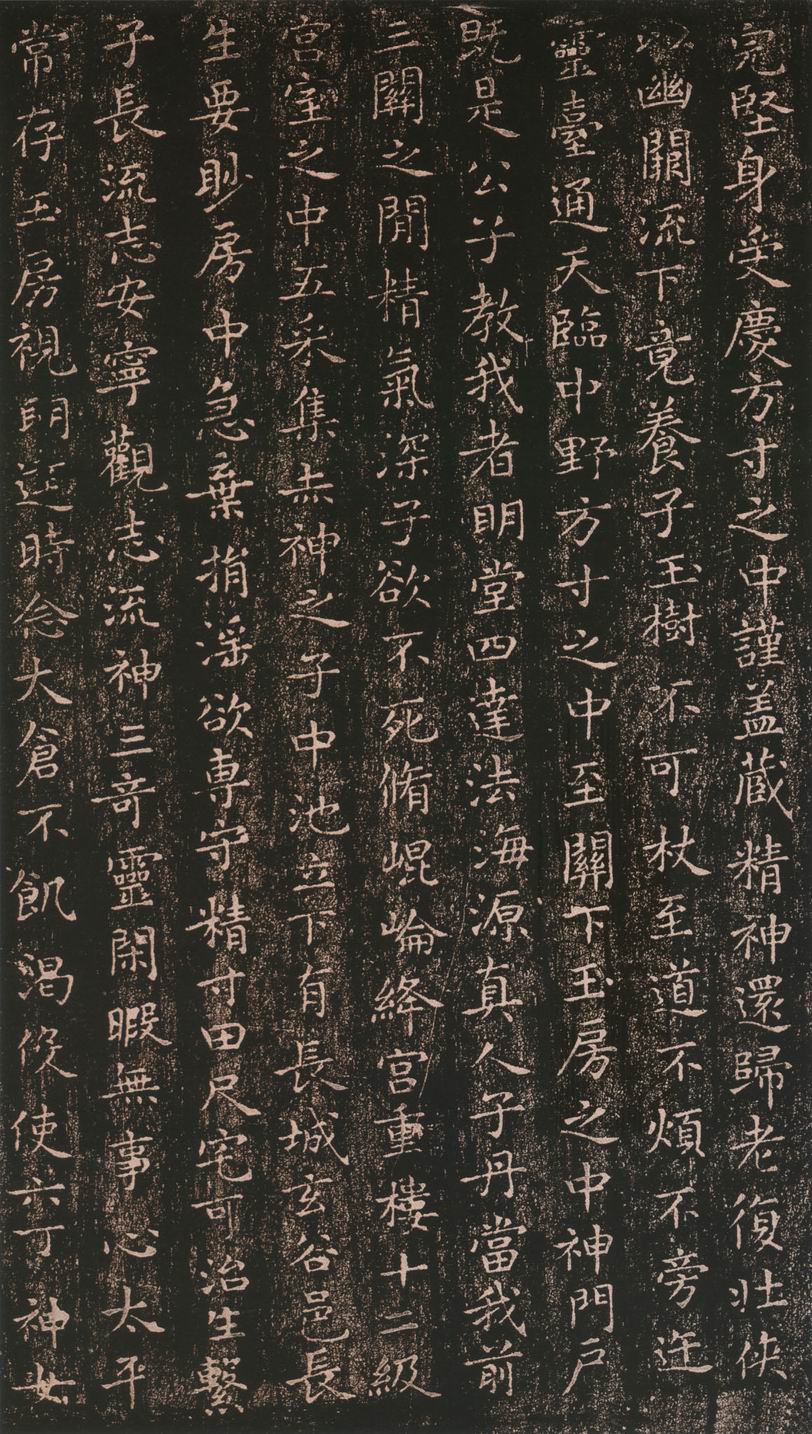 完堅身受慶方寸之中謹盖藏精神還歸老復壯侠
以幽闕流下竟養子玉樹不可杖至道不煩不旁迕
靈臺通天臨中野方寸之中至關下玉房之中神門戶
既是公子教我者明堂四達法海源真人子丹當我前
三關之閒精氣深子欲不死脩崐崘絳宮重樓十二級
宮室之中五采集赤神之子中池立下有長城玄谷邑長
生要眇房中急棄捐淫欲專守精寸田尺宅可治生繫
子長流志安寧觀志流神三奇靈閑暇無事心太平
常存玉房視明達時念大倉不飢渴伇使六丁神女